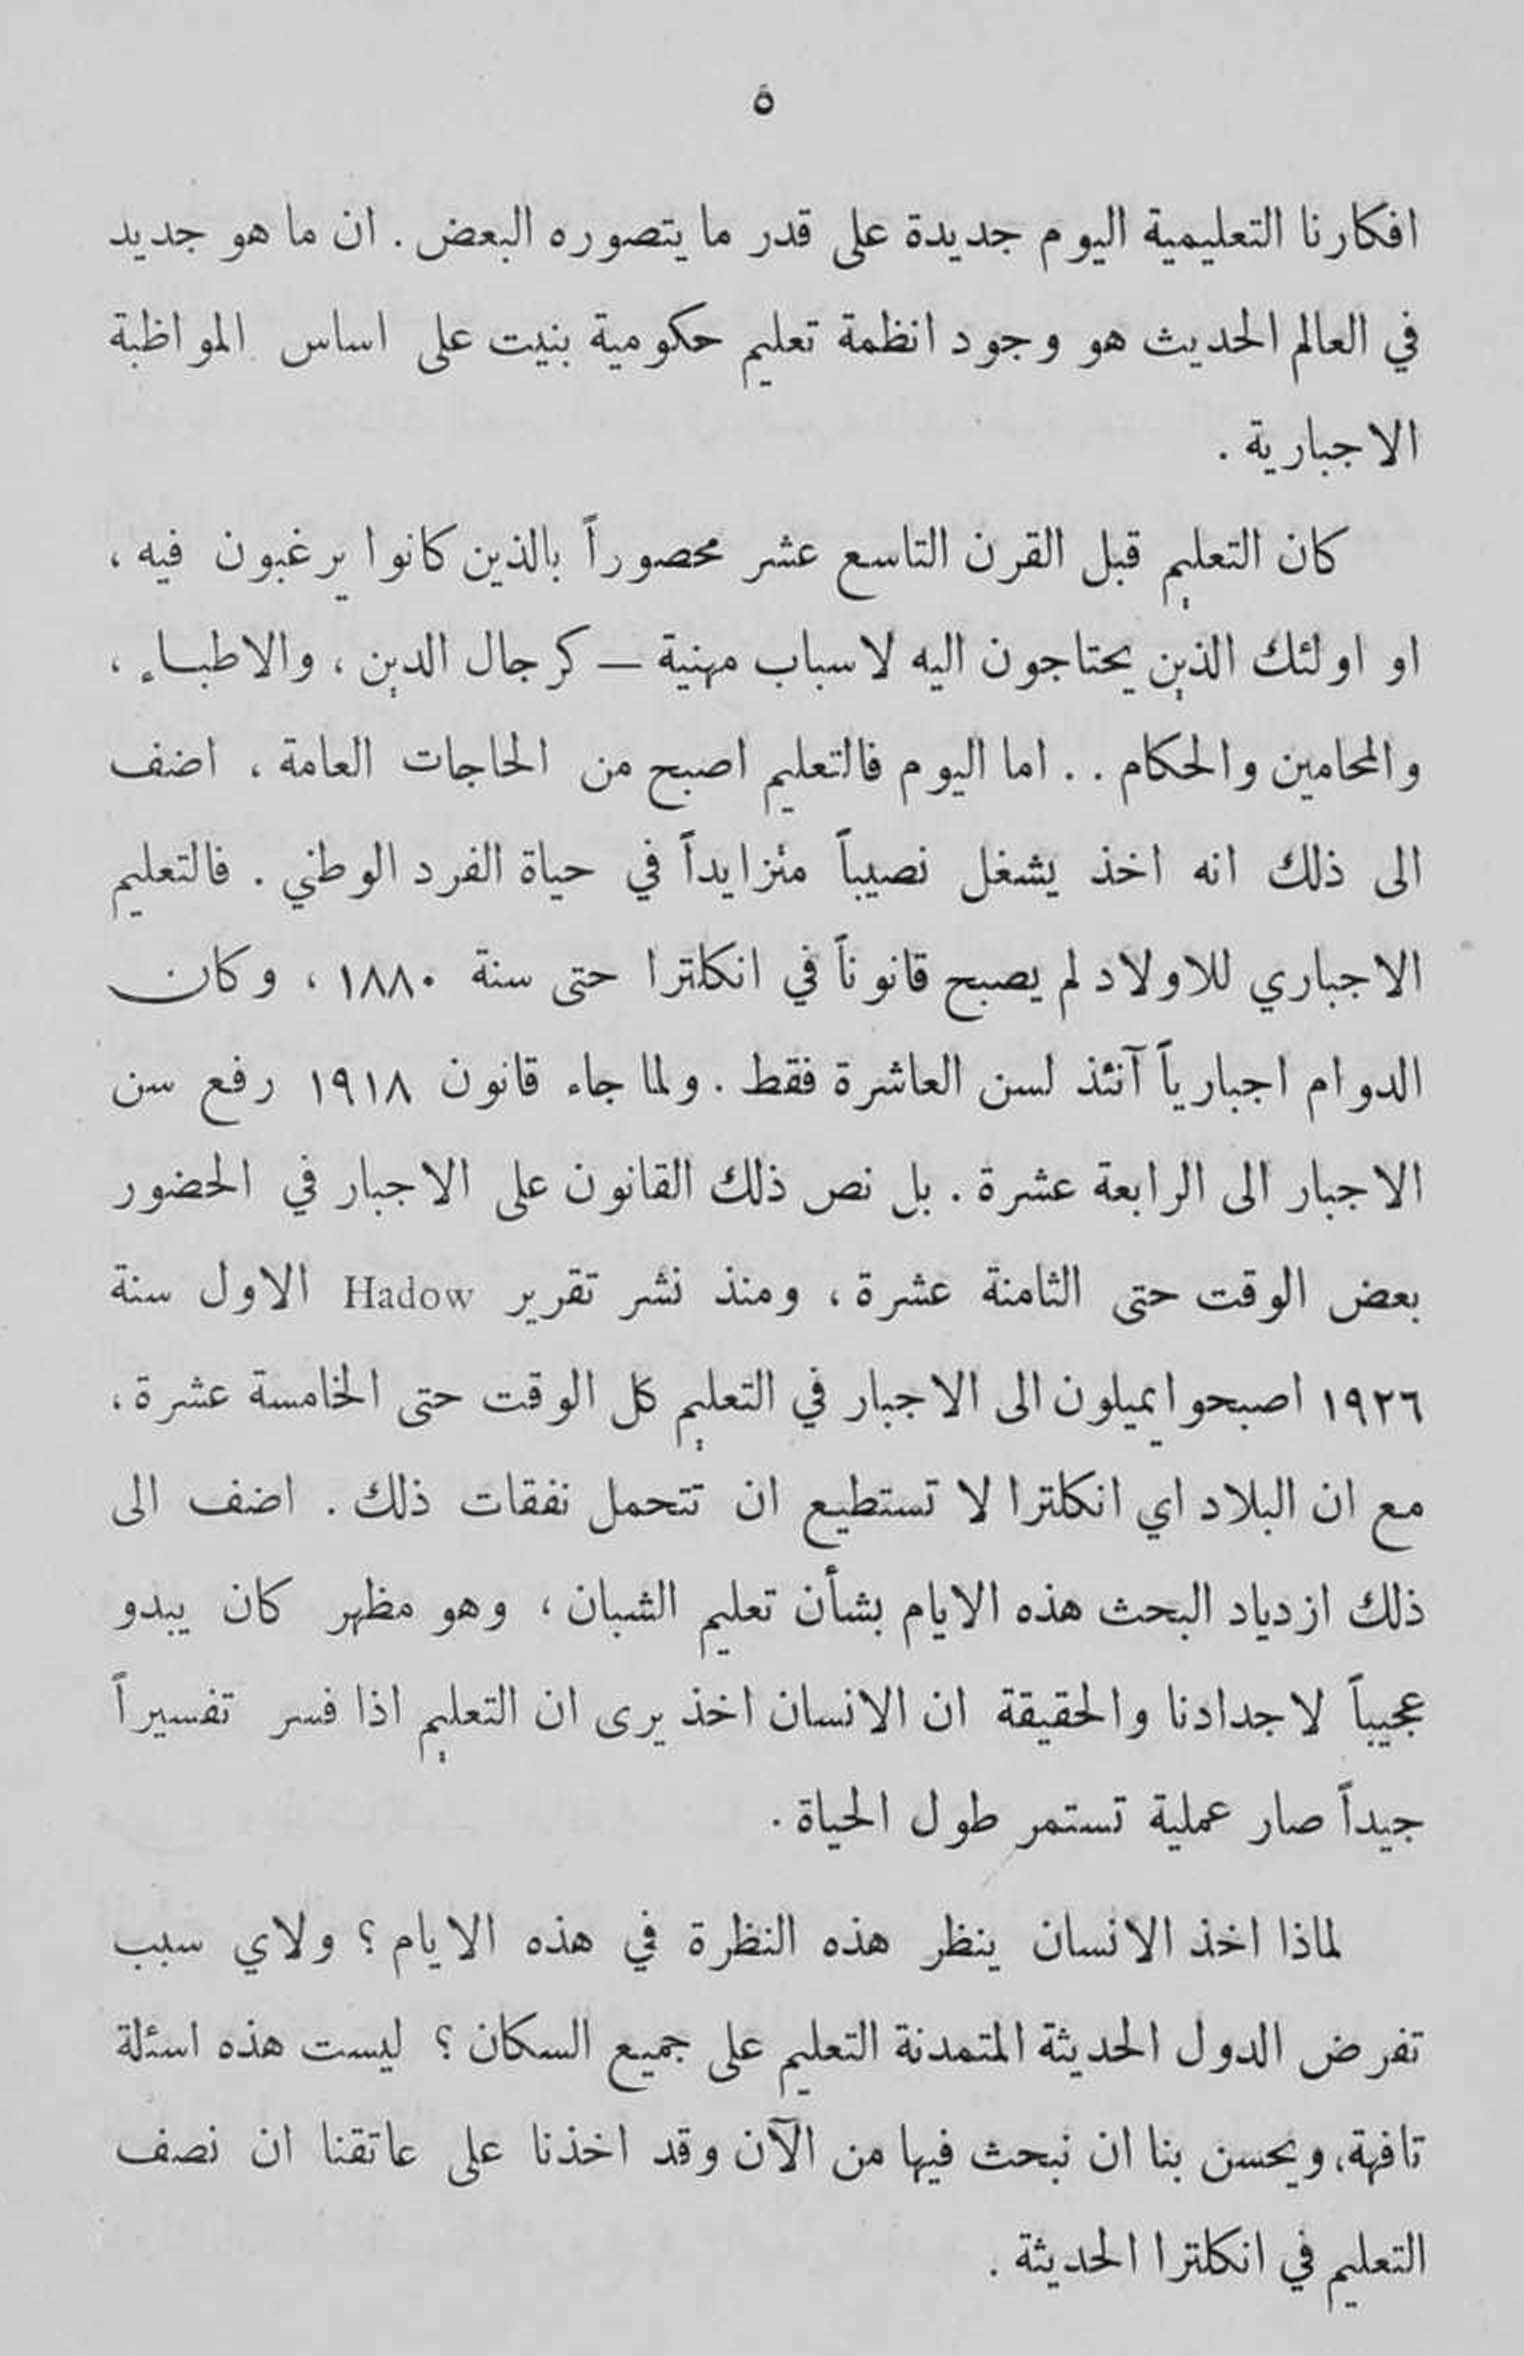 ٥
افكارنا التعليمية اليوم جديدة على قدر ما يتصوره البعض . ان ما هو جديد
في العالم الحديث هو وجود انظمة تعليم حكومية بنيت على اساس المواظبة
الاجبارية .
كان التعليم قبل القرن التاسع عشر محصوراً بالذين كانوا يرغبون فيه ،
او اولئك الذين يحتاجون اليه لاسباب مهنية — كرجال الدين ، والاطباء ،
والمحامين والحكام . . اما اليوم فالتعليم اصبح من الحاجات العامة ، اضف
الى ذلك انه اخذ يشغل نصيباً متزايداً في حياة الفرد الوطني . فالتعليم
الاجباري للاولاد لم يصبح قانوناً في انكلترا حتى سنة ١٨٨٠ ، وكان
الدوام اجبارياً آنئذ لسن العاشرة فقط . ولما جاء قانون ١٩١٨ رفع سن
الاجبار الى الرابعة عشرة . بل نص ذلك القانون على الاجبار في الحضور
بعض الوقت حتى الثامنة عشرة ، ومنذ نشر تقرير Hadow الاول سنة
١٩٢٦ اصبحوا يميلون الى الاجبار في التعليم كل الوقت حتى الخامسة عشرة ،
مع ان البلاد اي انكلترا لا تستطيع ان تتحمل نفقات ذلك . اضف الى
ذلك ازدياد البحث هذه الايام بشأن تعليم الشبان ، وهو مظهر كان يبدو
عجيباً لاجدادنا والحقيقة ان الانسان اخذ يرى ان التعليم اذا فسر تفسيراً
جيداً صار عملية تستمر طول الحياة .
لماذا اخذ الانسان ينظر هذه النظرة في هذه الايام ؟ ولاي سبب
تفرض الدول الحديثة المتمدنة التعليم على جميع السكان ؟ ليست هذه اسئلة
تافهة، ويحسن بنا ان نبحث فيها من الآن وقد اخذنا على عاتقنا ان نصف
التعليم في انكلترا الحديثة .